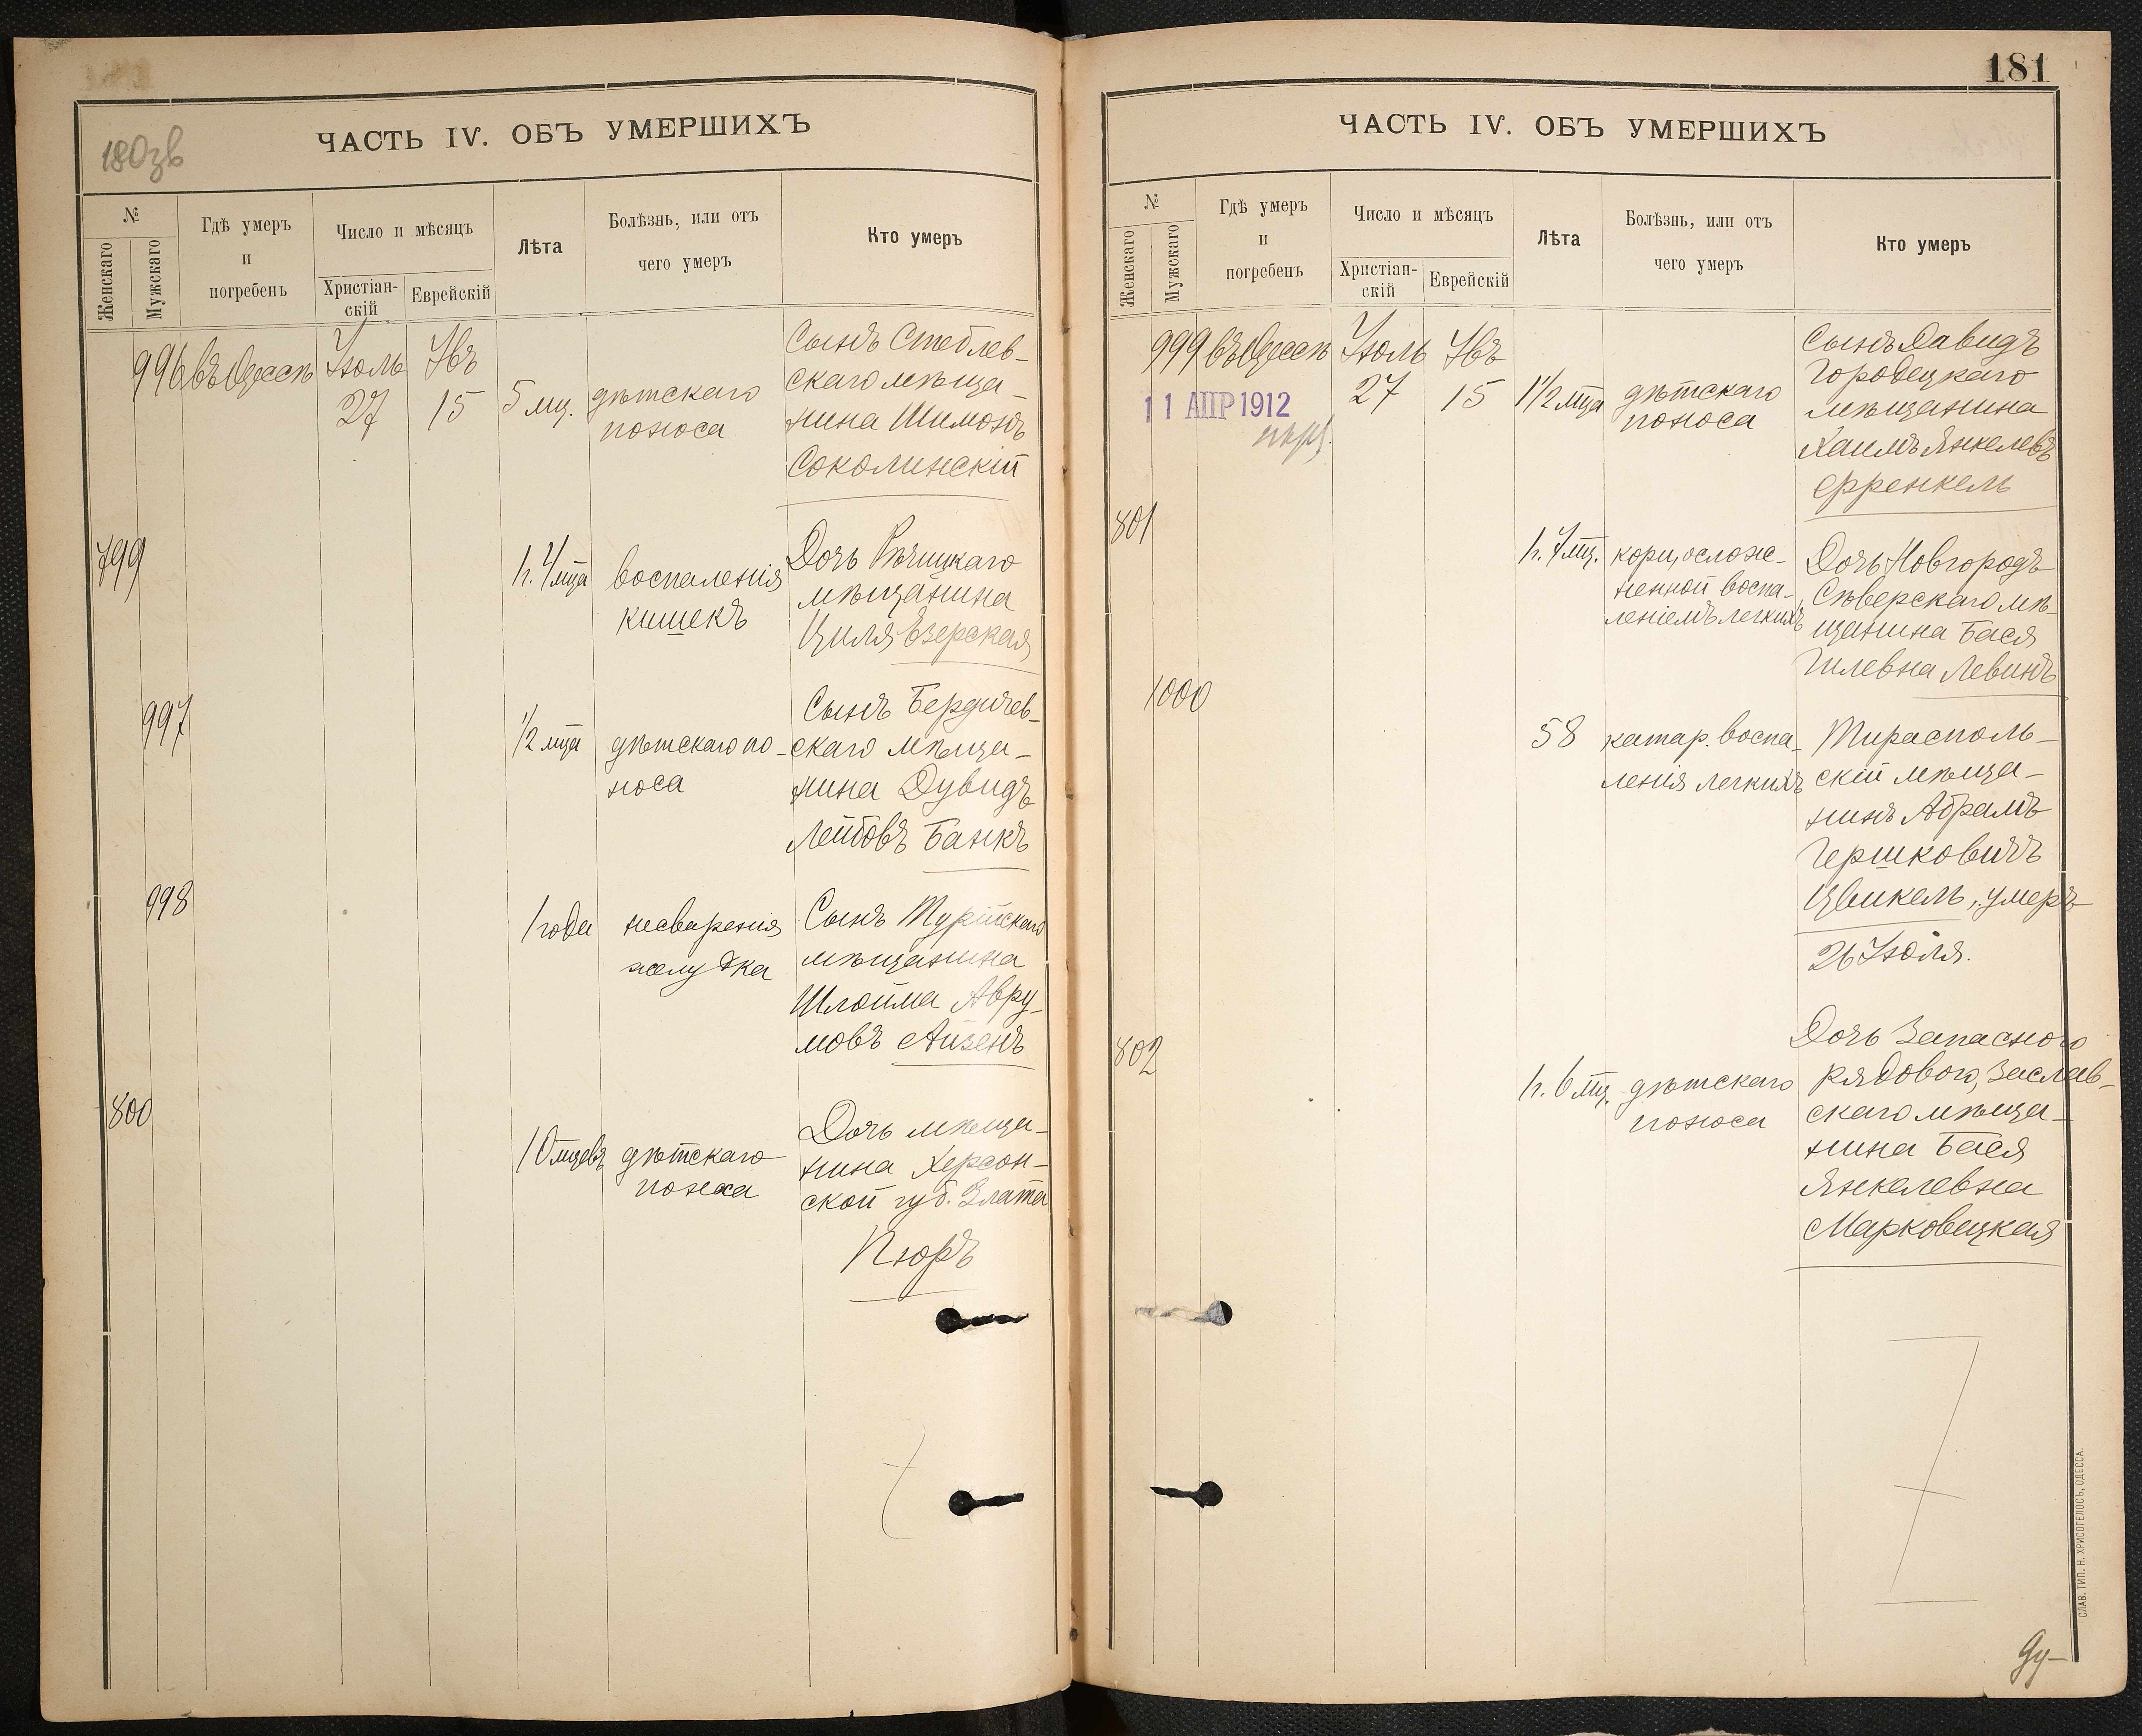 180зв
ЧАСТЬ IV. ОБЪ УМЕРШИХЪ
№
Женскаго
Мужскаго
Гдѣ умеръ
и
погребенъ
Число и мѣсяцъ
Христіан-
скій
Еврейскій
Лѣта
Болѣзнь, или отъ
чего умеръ
Кто умеръ
996
въ Одессѣ
Іюль
27
Явъ
15
5 мц.
дѣтскаго
поноса
Сынъ Стеблев-
скаго мѣща-
нина Шимонъ
Соколинскій
799
1 г. 4 мца
воспаленія
кишекъ
Дочь Рѣчицкаго
мѣщанина
Циля Езерская
997
1/2 мца
дѣтскаго по-
носа
Сынъ Бердичев-
скаго мѣща-
нина Дувидъ
Лейбовъ Банкъ
998
1 года
несваренія
желудка
Сынъ Турійскаго
мѣщанина
Шлойма Авру-
мовъ Айзенъ
800
10 мцевъ
дѣтскаго
поноса
Дочь мѣща-
нина Херсон-
ской губ. Злата
Пюръ
181
ЧАСТЬ IV. ОБЪ УМЕРШИХЪ
№
Женскаго
Мужскаго
Гдѣ умеръ
и
погребенъ
Число и мѣсяцъ
Христіан-
скій
Еврейскій
Лѣта
Болѣзнь, или отъ
чего умеръ
Кто умеръ
999
въ Одессѣ
11 АПР 1912
Іюль
27
Явъ
15
1 1/2 мца
дѣтскаго
поноса
Сынъ Давидъ
Городецкаго
мѣщанина
Хаимъ Янкелевъ
Френкель
801
1 г. 7 мц.
кори, ослож-
ненной воспа-
леніемъ легкихъ
Дочь Новгородъ
Сѣверскаго мѣ-
щанина Бася
Гилевна Левинъ
1000
58
катар. воспа-
ленія легкихъ
Тирасполь-
скій мѣща-
нинъ Абрамъ
Гершковичъ
Цвикель, умеръ
26 Іюля.
802
1 г. 6 мц.
дѣтскаго
поноса
Дочь Запасного
рядового, Заслав-
скаго мѣща-
нина Бася
Янкелевна
Марковецкая
СЛАВ. ТИП. Н. ХРИСОГЕЛОСЪ, ОДЕССА.